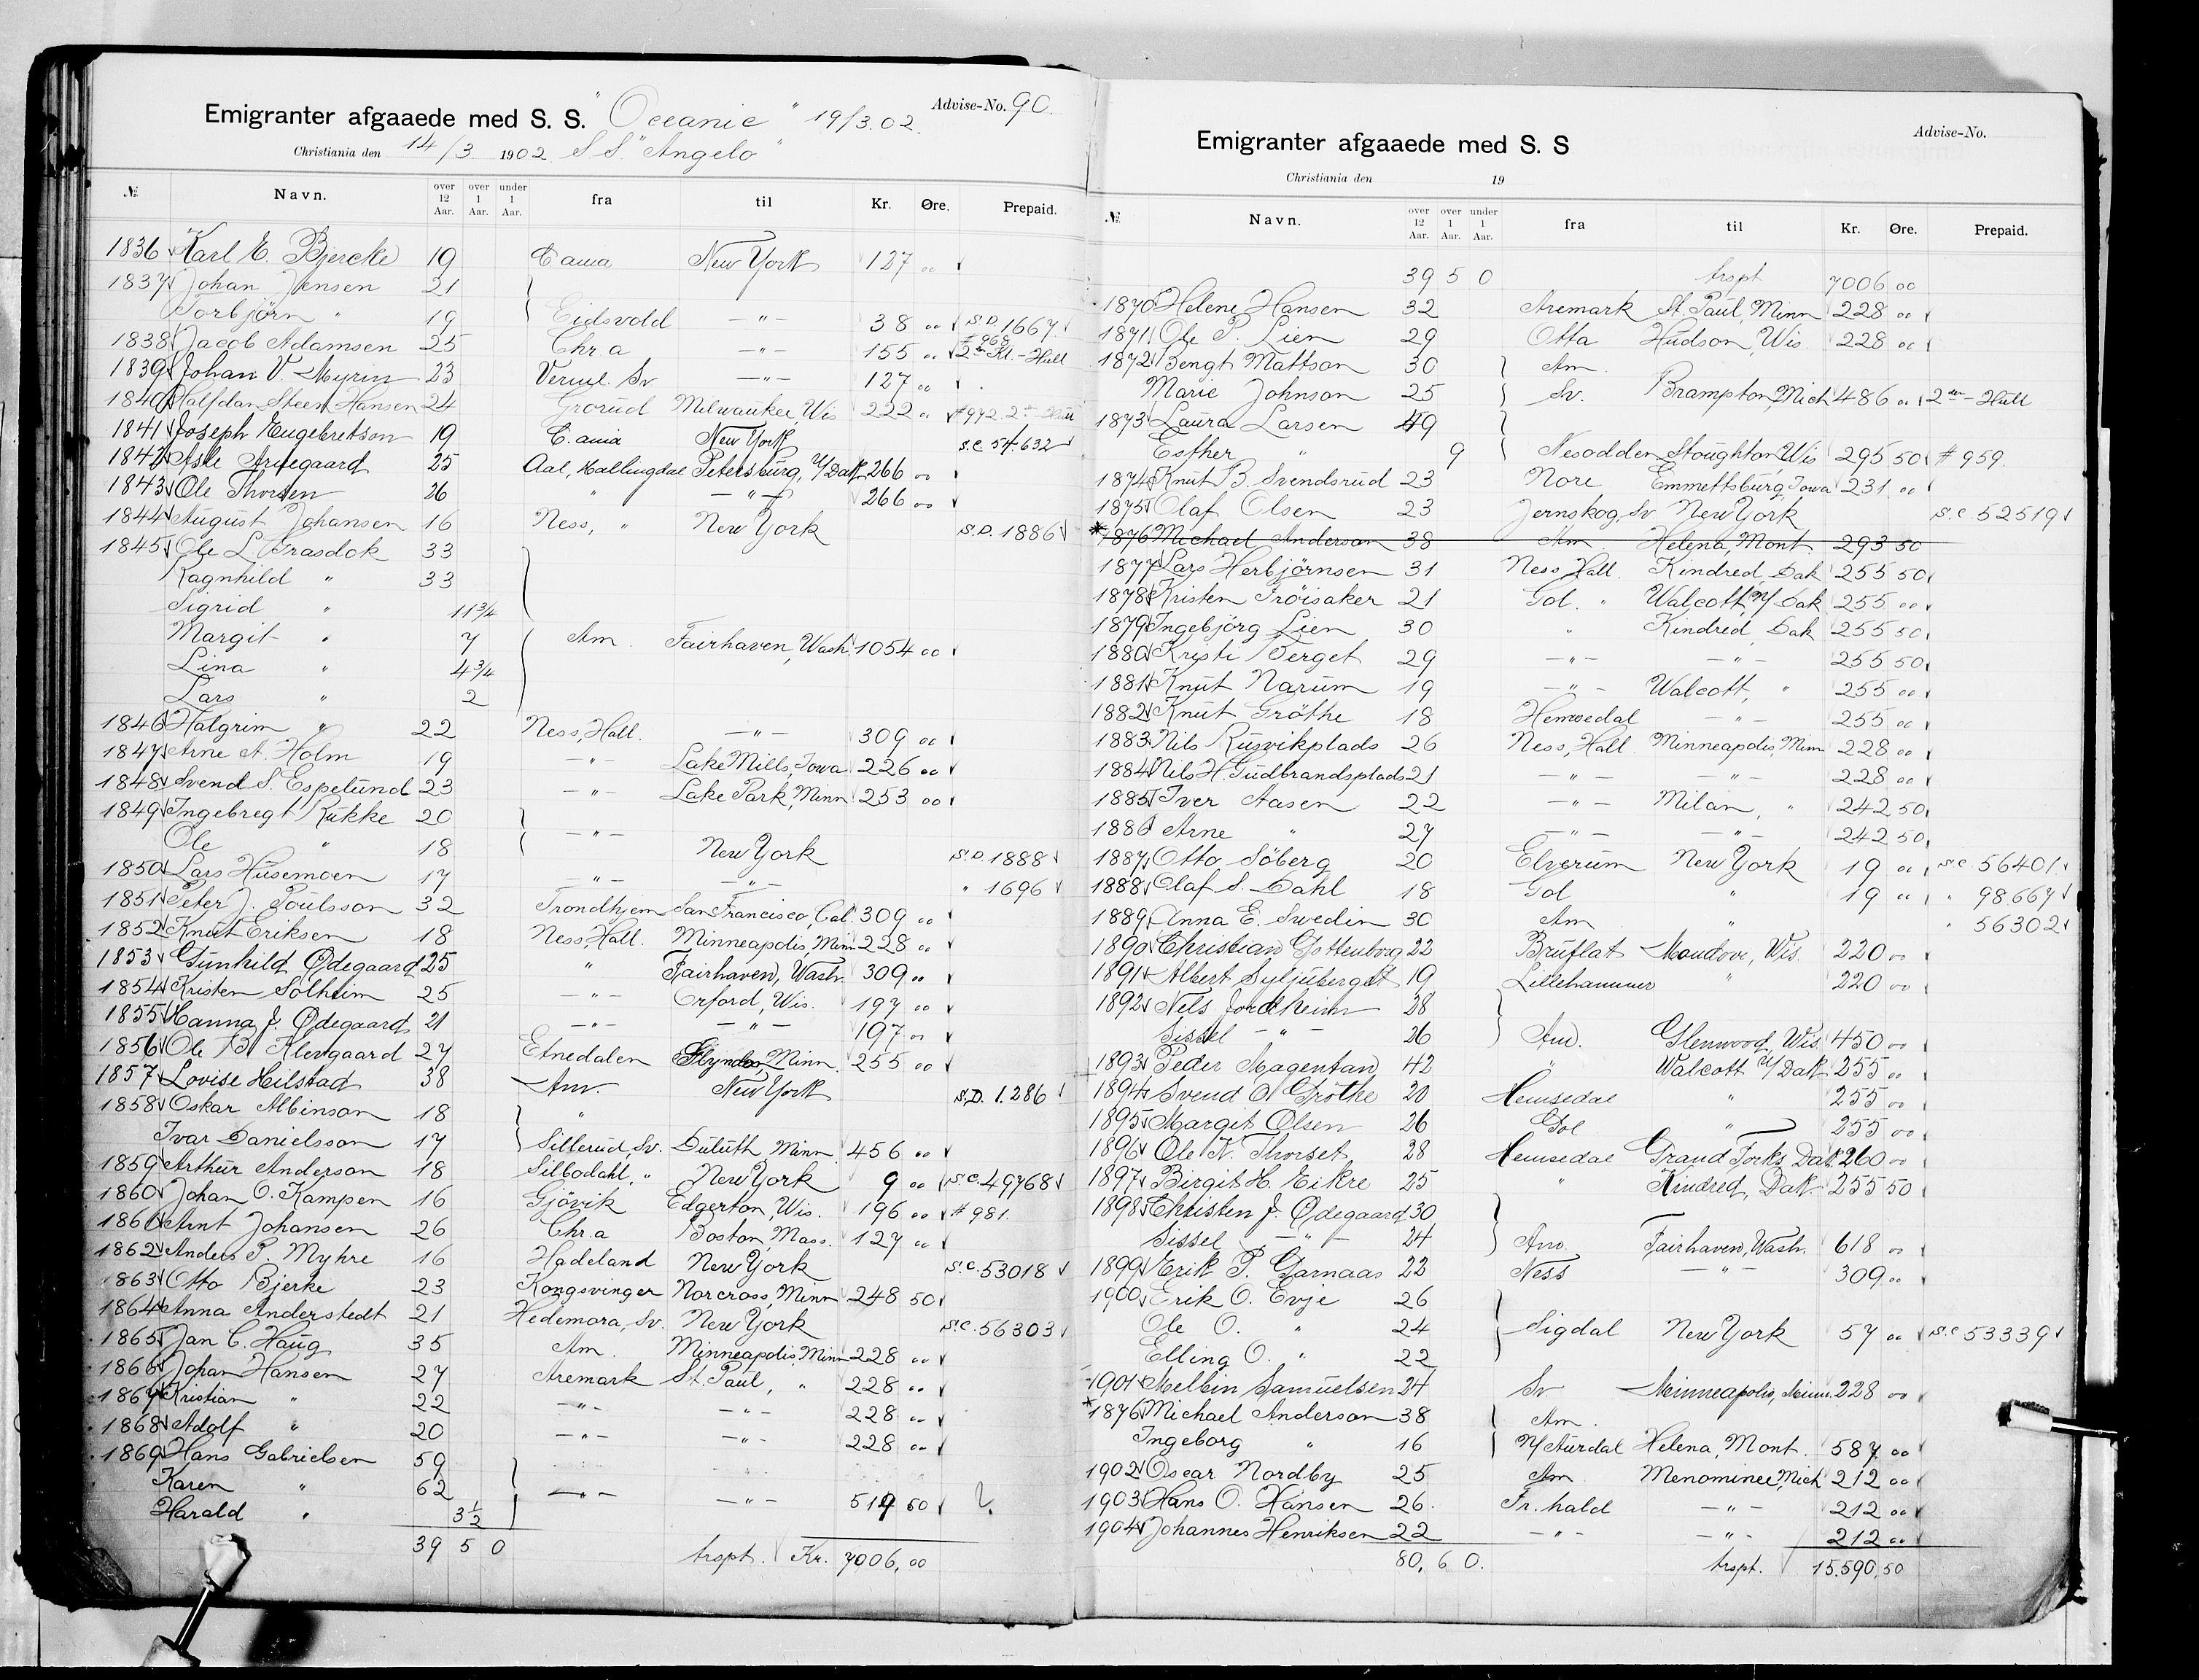 Emigranter afgaaede med S. S. "Oceanic" 19/3.02. Advise-No. 90.
Christiania den 14/3 1902 S S "Angelo"
№ Navn. over 12 Aar. over 1 Aar. under 1 Aar. fra til Kr. Øre. Prepaid.
1836 Karl E. Bjercke 19 C ania New York 127 00
1837 Johan Jensen 21
Torbjörn " 19 Eidsvold —"— 38 00 S.D. 1667
1838 Jacob Adamsen 25 Chr a —"— 155 00 # 968 2den Kl. - Hull
1839 Johan V. Myrin 23 Verml. Sv —"— 127 00
1840 Halfdan Steen Hansen 24 Grorud Milwaukee, Wis 222 00 #972. 2
1841 Joseph Engebretson 19 C. ania New York S.C 54.632
1842 Asle Arnegaard 25 Aal, Hallingdal Petersburg, N/Dak 266 00
1843 Ole Thorsen 26 " —"— 266 00
1844 August Johansen 16 Ness, " New York S.D. 1886
1845 Ole L. Grasdok 33
Ragnhild " 33
Sigrid " 11 3/4
Margit " 7 Am. Fairhaven, Wash. 1054 00
Lina " 4 3/4
Lars " 2
1846 Halgrim " 22 Ness, Hall. —"— 309 00
1847 Arne A. Holm 19 —"— Lake Mills, Iowa 226 00
1848 Svend S. Espelund 23 —"— Lake Park, Minn 253 00
1849 Ingebregt Rukke 20
Ole " 18 —"— New York S.D. 1888
1850 Lars Husemoen 17 —"— —"— " 1696
1851 Peter J. Poulsson 32 Trondhjem San Francisco, Cal. 309 00
1852 Knut Eriksen 18 Ness, Hall. Minneapolis, Minn 228 00
1853 Gunhild Ødegaard 25 " Fairhaven, Wash. 309 00
1854 Kristen Solheim 25 —"— Orford, Wis. 197 00
1855 Hanna J. Ødegaard 21 —"— —"— 197 00
1856 Ole B. Klevgaard 27 Etnedalen Glyndon, Minn. 255 00
1857 Lovise Heilstad 38 Am. New York S.D. 1.286
1858 Oskar Albinson 18 "
Ivar Danielsson 17 Sillerud, Sv. Duluth, Minn. 456 00
1859 Arthur Anderson 18 Silbodahl, " New York 9 00 S.C. 49768
1860 Johan O. Kampen 16 Gjövik Edgerton, Wis. 196 00 # 981.
1861 Arnt Johansen 26 Chr. a Boston, Mass. 127 00
1862 Anders P. Myhre 16 Hadeland New York S.C. 53018
1863 Otto Bjerke 23 Kongsvinger Norcross, Minn 248 50
1864 Anna Anderstedt 21 Hedemora, Sv. New York S.C. 56303
1865 Jan C. Haug 35 Am. Minneapolis, Minn 228 00
1866 Johan Hansen 27 Aremark St. Paul, " 228 00
1867 Kristian " 22 —"— —"— 228 00
1868 Adolf " 20 —"— —"— 228 00
1869 Hans Gabrielsen 59
Karen " 62 —"— —"— 514 50
Harald " 3 1/2
39 5 0 trspt. Kr. 7006,00
Emigranter afgaaede med S. S Advise-No.
Christiania den 19
№ Navn. over 12 Aar. over 1 Aar. under 1 Aar. fra til Kr. Øre. Prepaid.
39 5 0 trspt 7006 00
1870 Helene Hansen 32 Aremark St. Paul, Minn 228 00
1871 Ole P. Lien 29 Otta Hudson, Wis 228 00
1872 Bengt Mattson 30 Am.
Marie Johnson 25 Sv. Brampton, Mich 486 00 2den - Hull
1873 Laura Larsen 49
Esther " 9 Nesodden Stoughton, Wis 295 50 # 959.
1874 Knut B. Svendsrud 23 Nore Emmettsburg, Iowa 231 00
1875 Olaf Olsen 23 Jernskog, Sv. New York S.C. 52519
* 1876 Michael Anderson 38 Am Helena, Mont 293 50
1877 Lars Herbjörnsen 31 Ness, Hall. Kindred, Dak 255 50
1878 Kristen Tröisaker 21 Gol. " Walcott, N/ Dak 255 00
1879 Ingebjörg Lien 30 " Kindred, Dak 255 50
1880 Kristi Verget 29 —"— —"— 255 50
1881 Knut Narum 19 —"— Walcott, " 255 00
1882 Knut Gröthe 18 Hemsedal —"— 255 00
1883 Nils Rusvikplads 26 Ness, Hall. Minneapolis, Minn 228 00
1884 Nils H. Gudbrandsplads 21 —"— —"— 228 00
1885 Iver Aasen 22 —"— Milan, " 242 50
1886 Arne " 27 —"— —"— 242 50
1887 Otto Söberg 20 Elverum New York 19 00 S.C. 56401
1888 Olaf S. Dahl 18 Gol " 19 00 " 98667
1889 Anna E. Swedin 30 Am " " 56302
1890 Christian Gottenborg 22 Bruflat Mondovi, Wis. 220 00
1891 Albert Syljuberget 19 Lillehammer " 220 00
1892 Nels Jordheim 28
Sissel —"— 26 Am. Glenwood, Wis. 450 00
1893 Peder Magentan 42 " Walcott N/Dak. 255 00
1894 Svend O. Gröthe 20 Hemsedal " 255 00
1895 Margit Olsen 26 Gol " 255 00
1896 Ole K. Thorset 28 Hemsedal Grand Forks, Dak. 260 00
1897 Birgit H. Eikre 25 " Kindred, Dak. 255 50
1898 Christen J. Ødegaard 30
Sissel —"— 24 Am. Fairhaven, Wash. 618 00
1899 Erik P. Garnaas 22 Ness —"— 309 00
1900 Erik O. Evje 26
Ole O. " 24 Sigdal New York 57 00 S.C 53339
Elling O. " 22
1901 Melbin Samuelsen 24 Sv Minneapolis, Minn. 228 00
* 1876 Michael Anderson 38 Am.
Ingeborg " 16 N/Aurdal Helena, Mont. 587 00
1902 Oscar Nordby 25 Am Menominee, Mich 212 00
1903 Hans O. Hansen 26. Fr. hald —"— 212 00
1904 Johannes Henriksen 22 —"— —"— 212 00
80, 6 0. trspt. 15.590,50